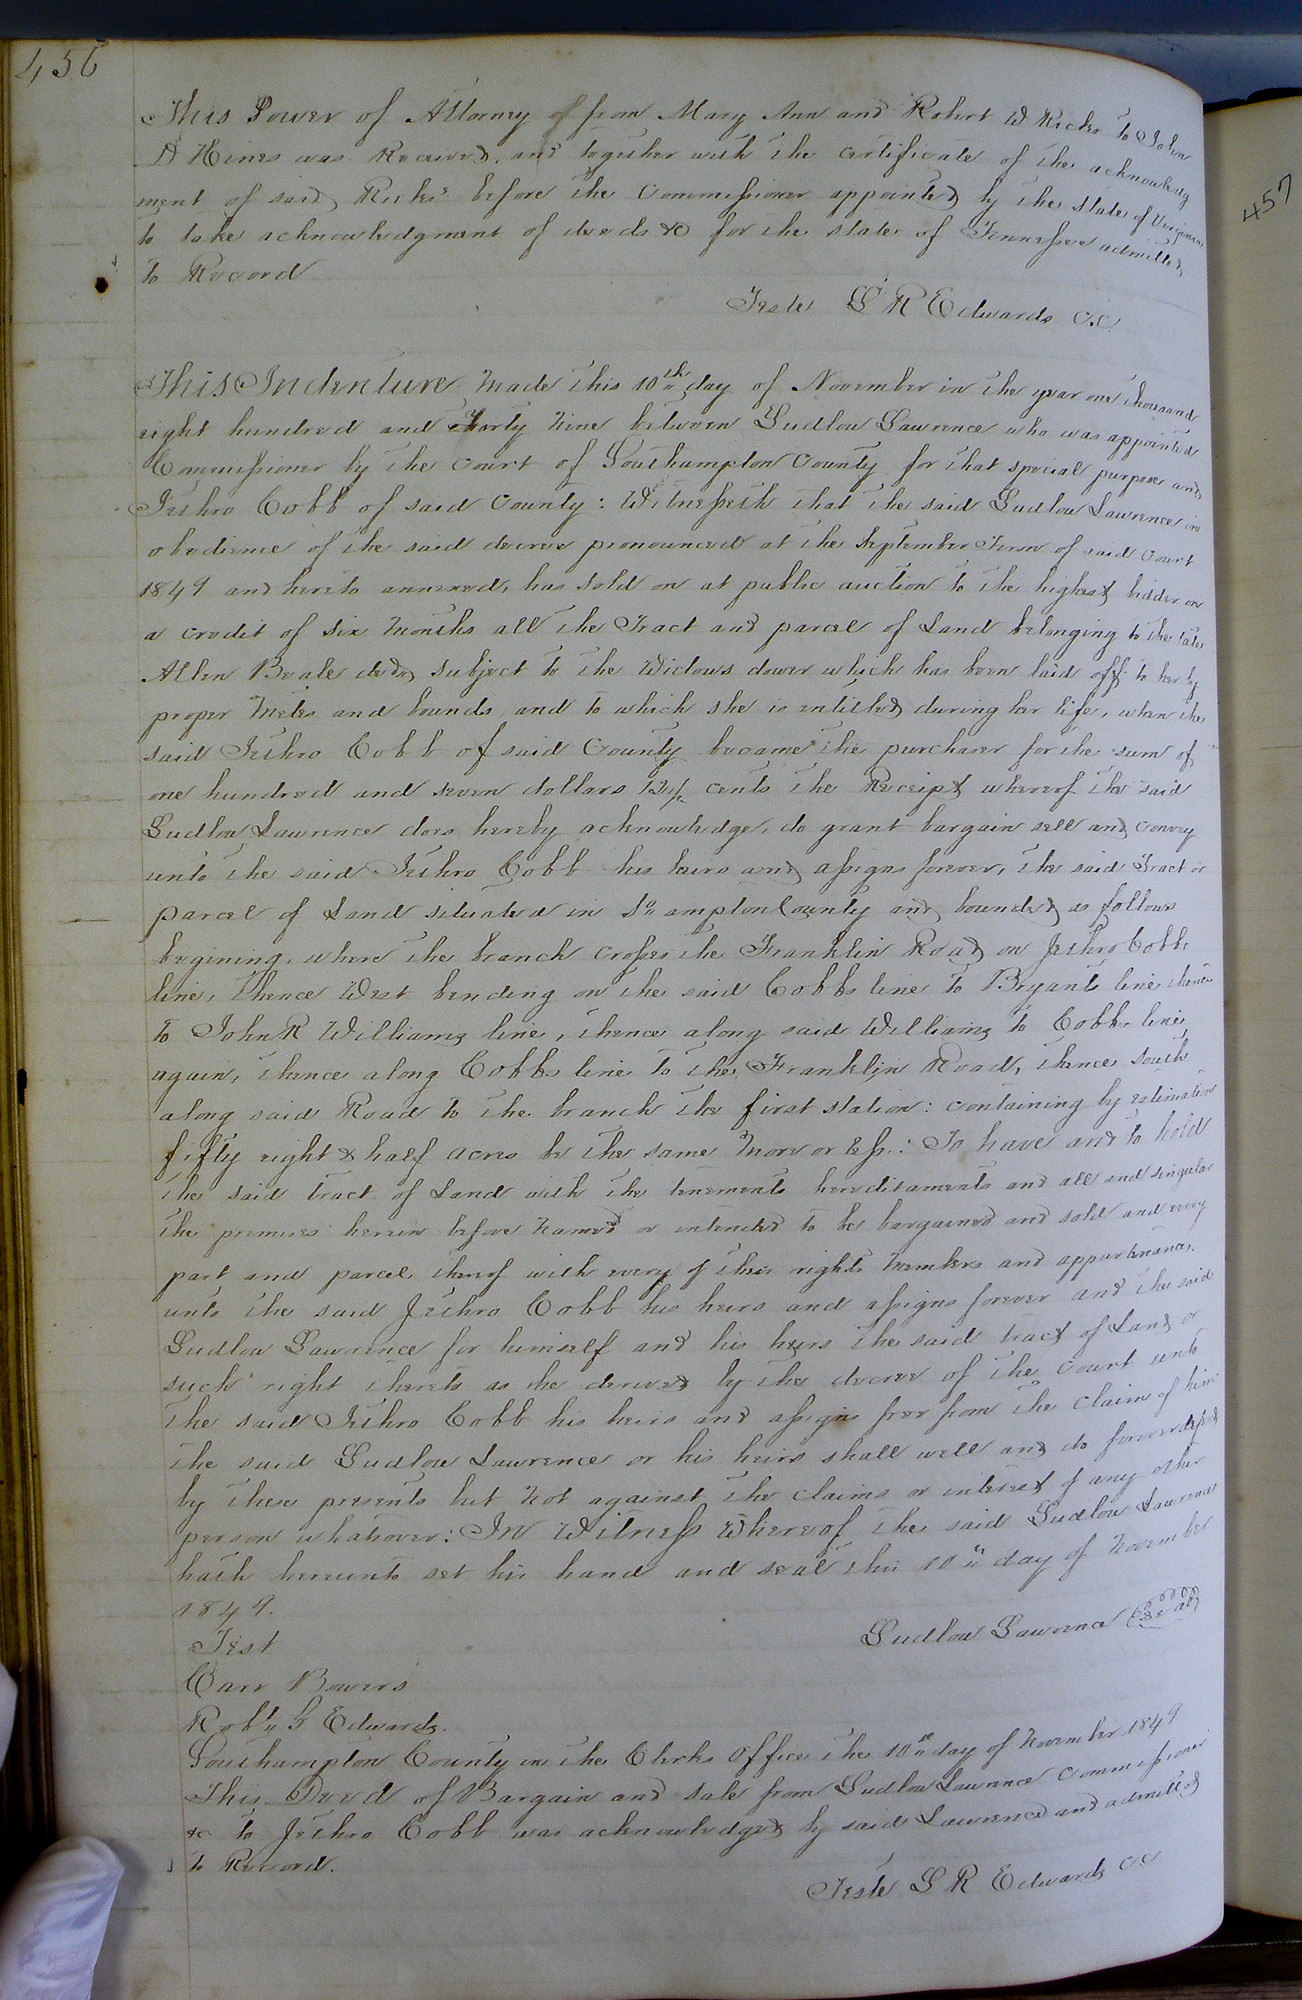 456
This Power of Attorney of from Mary Ann and Robert W Ricks to John
A Hines was Received, and together with the certificate of the acknowledg
ment of said Ricks before the Commissioner appointed by the State of Virginia
to take acknowledgment of deeds &c for the state of Tennessee admitted
to Record
Teste L R Edwards C.C
457
This Indenture Made this 10th day of November in the year one thousand
eight hundred and Forty Nine between Ludlow Lawrence who was appointed
Commissioner by the Court of Southampton County for that special purpose and
Jethro Cobb of said County: Witnesseth that the said Ludlow Lawrence in
obedience of the said decree pronounced at the September Term of said Court
1849 and hereto annexed, has sold on at public auction to the highest bidder on
a credit of Six Months all the Tract and parcel of Land belonging to the late
Allen Beale decd, subject to the Widows dower which has been laid off to her by
proper Metes and bounds and to which she is entitled during her life, when the
said Jethro Cobb of said County became the purchaser for the sum of
one hundred and seven dollars cents the Receipt whereof the said
Ludlow Lawrence does hereby acknowledge, do grant bargain sell and convey
unto the said Jethro Cobb his heirs and assigns forever, the said Tract or
parcel of Land situated in So ampton County and bounded as follows
begining, where the branch crosses the Franklin Road on Jethro Cobbs
line, thence West bending on the said Cobbs line to Bryants line thence
to John R Williams line, thence along said Williams to Cobbs line
again, thence along Cobbs line to the Franklin Road, thence South
along said Road to the branch the first station: containing by estimation
fifty eight & half acres be the same More or less: To have and to hold
the said tract of Land with the tenements hereditaments and all and singular
the premises herein before Named or intended to be bargained and sold and every
part and parcel thereof with every of their rights Members and appurtenances
unto the said Jethro Cobb his heirs and assigns forever and the said
Ludlow Lawrence for himself and his heirs the said tract of Land or
such right thereto as he derived by the decree of the Court unto
the said Jethro Cobb his heirs and assigns free from the Claim of him
the said Ludlow Lawrence or his heirs shall well and do forever defend
by these presents but Not against the claims or interest of any other
person whatsoever: In Witness Whereof the said Ludlow Lawrence
hath hereunto set his hand and seal this 10th day of November
1849.
Ludlow Lawrence Seal
Test
Carr Bowers
Robt G Edwards.
Southampton County in the Clerks Office the 10th day of November 1849
This Deed of Bargain and Sale from Ludlow Lawrence Commissioner
&c to Jethro Cobb was acknowledged by said Lawrence and admitted
to Record.
Teste L R Edwards C.C